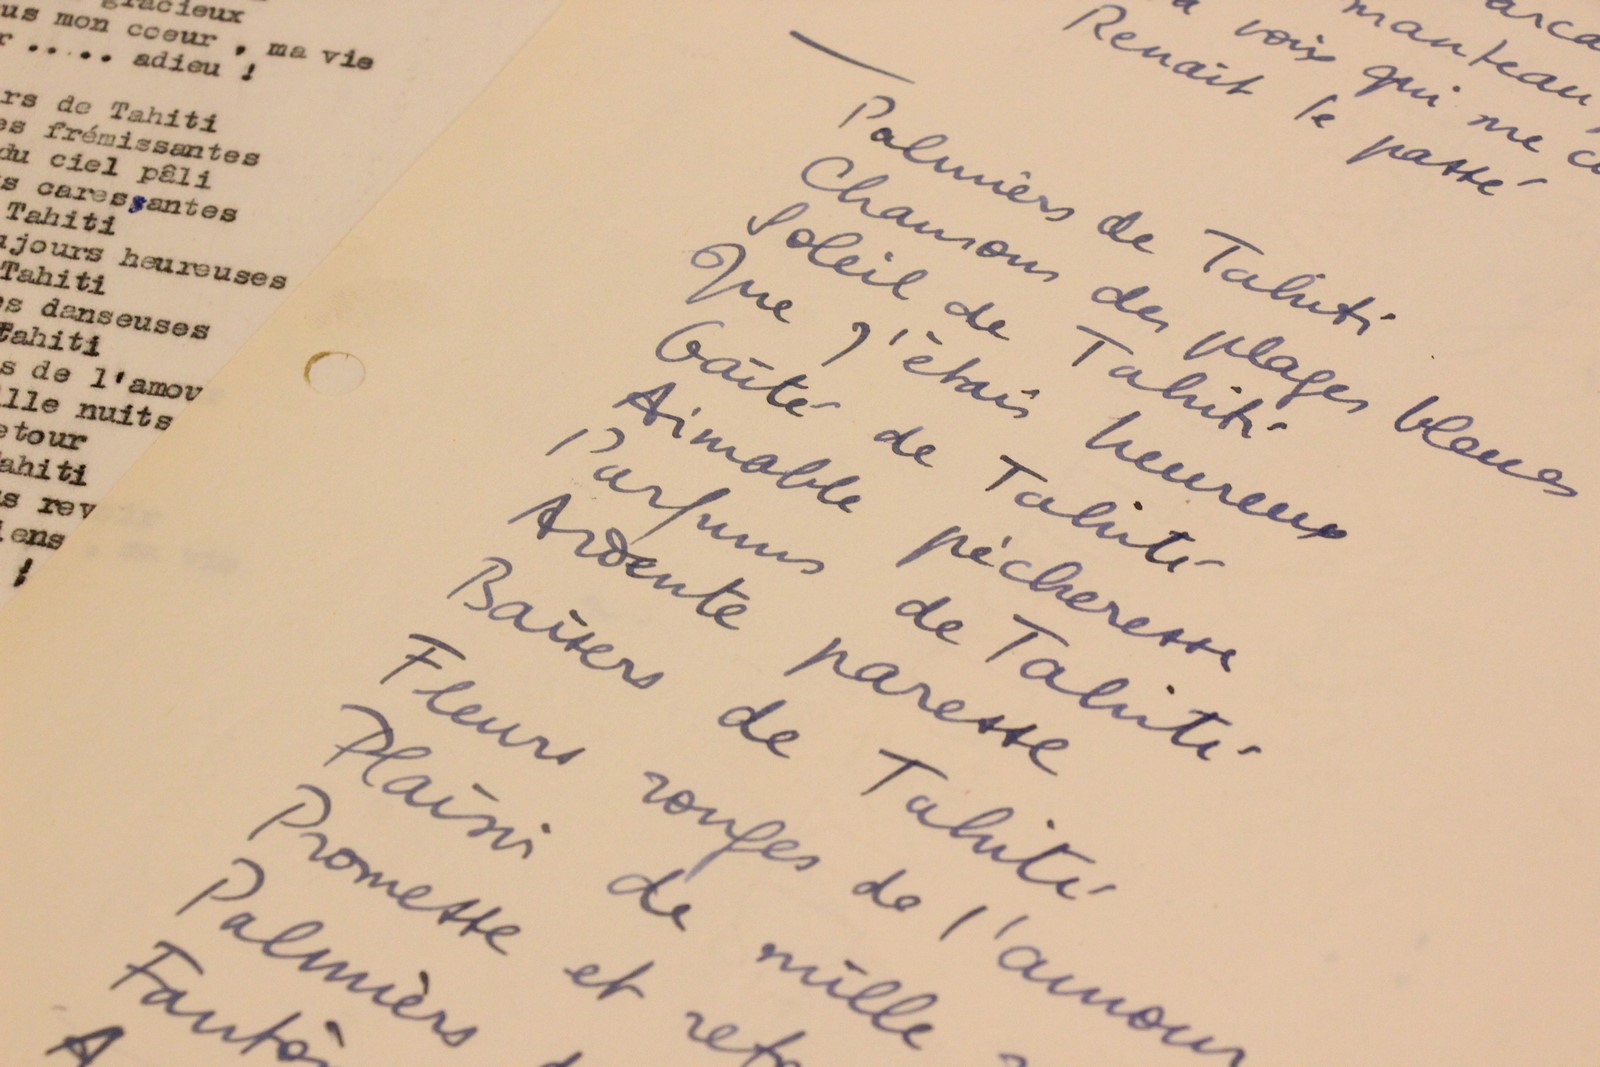 gracieux
us mon coeur , ma vie
r ..... adieu !
rs de Tahiti
es frémissantes
du ciel pâli
s caressantes
Tahiti
ujours heureuses
Tahiti
es danseuses
Tahiti
s de l'amour
ille nuits
etour
ahiti
us rev
iens
!
manteau,
a voix qui me
Renait le passé
Palmièrs de Tahiti
Chansons des plages blanches
Soleil de Tahiti
Que j'étais heureux
Gaîté de Tahiti
Aimable pécheresse
Parfums de Tahiti
Ardente paresse
Baisers de Tahiti
Fleurs rouges de l'amour
Plaisir de mille
Promesse et reto
Palmièrs
Fantô
A